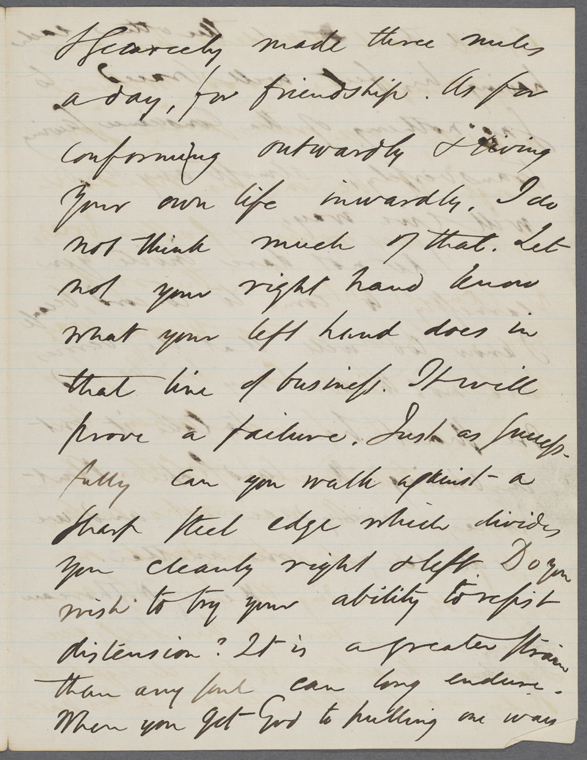 Scarcely made three miles
a day, for friendship. As for
conforming outwardly & living
your own life inwardly, I do
not think much of that. Let
not your right hand know
what your left hand does in
that line of business. It will
prove a failure. Just as success-
fully can you walk against a
sharp steel edge which divides
you cleanly right & left. Do you
wish to try your ability to resist
distension? It is a greater strain
than any soul can long endure.
When you get God to pulling one way